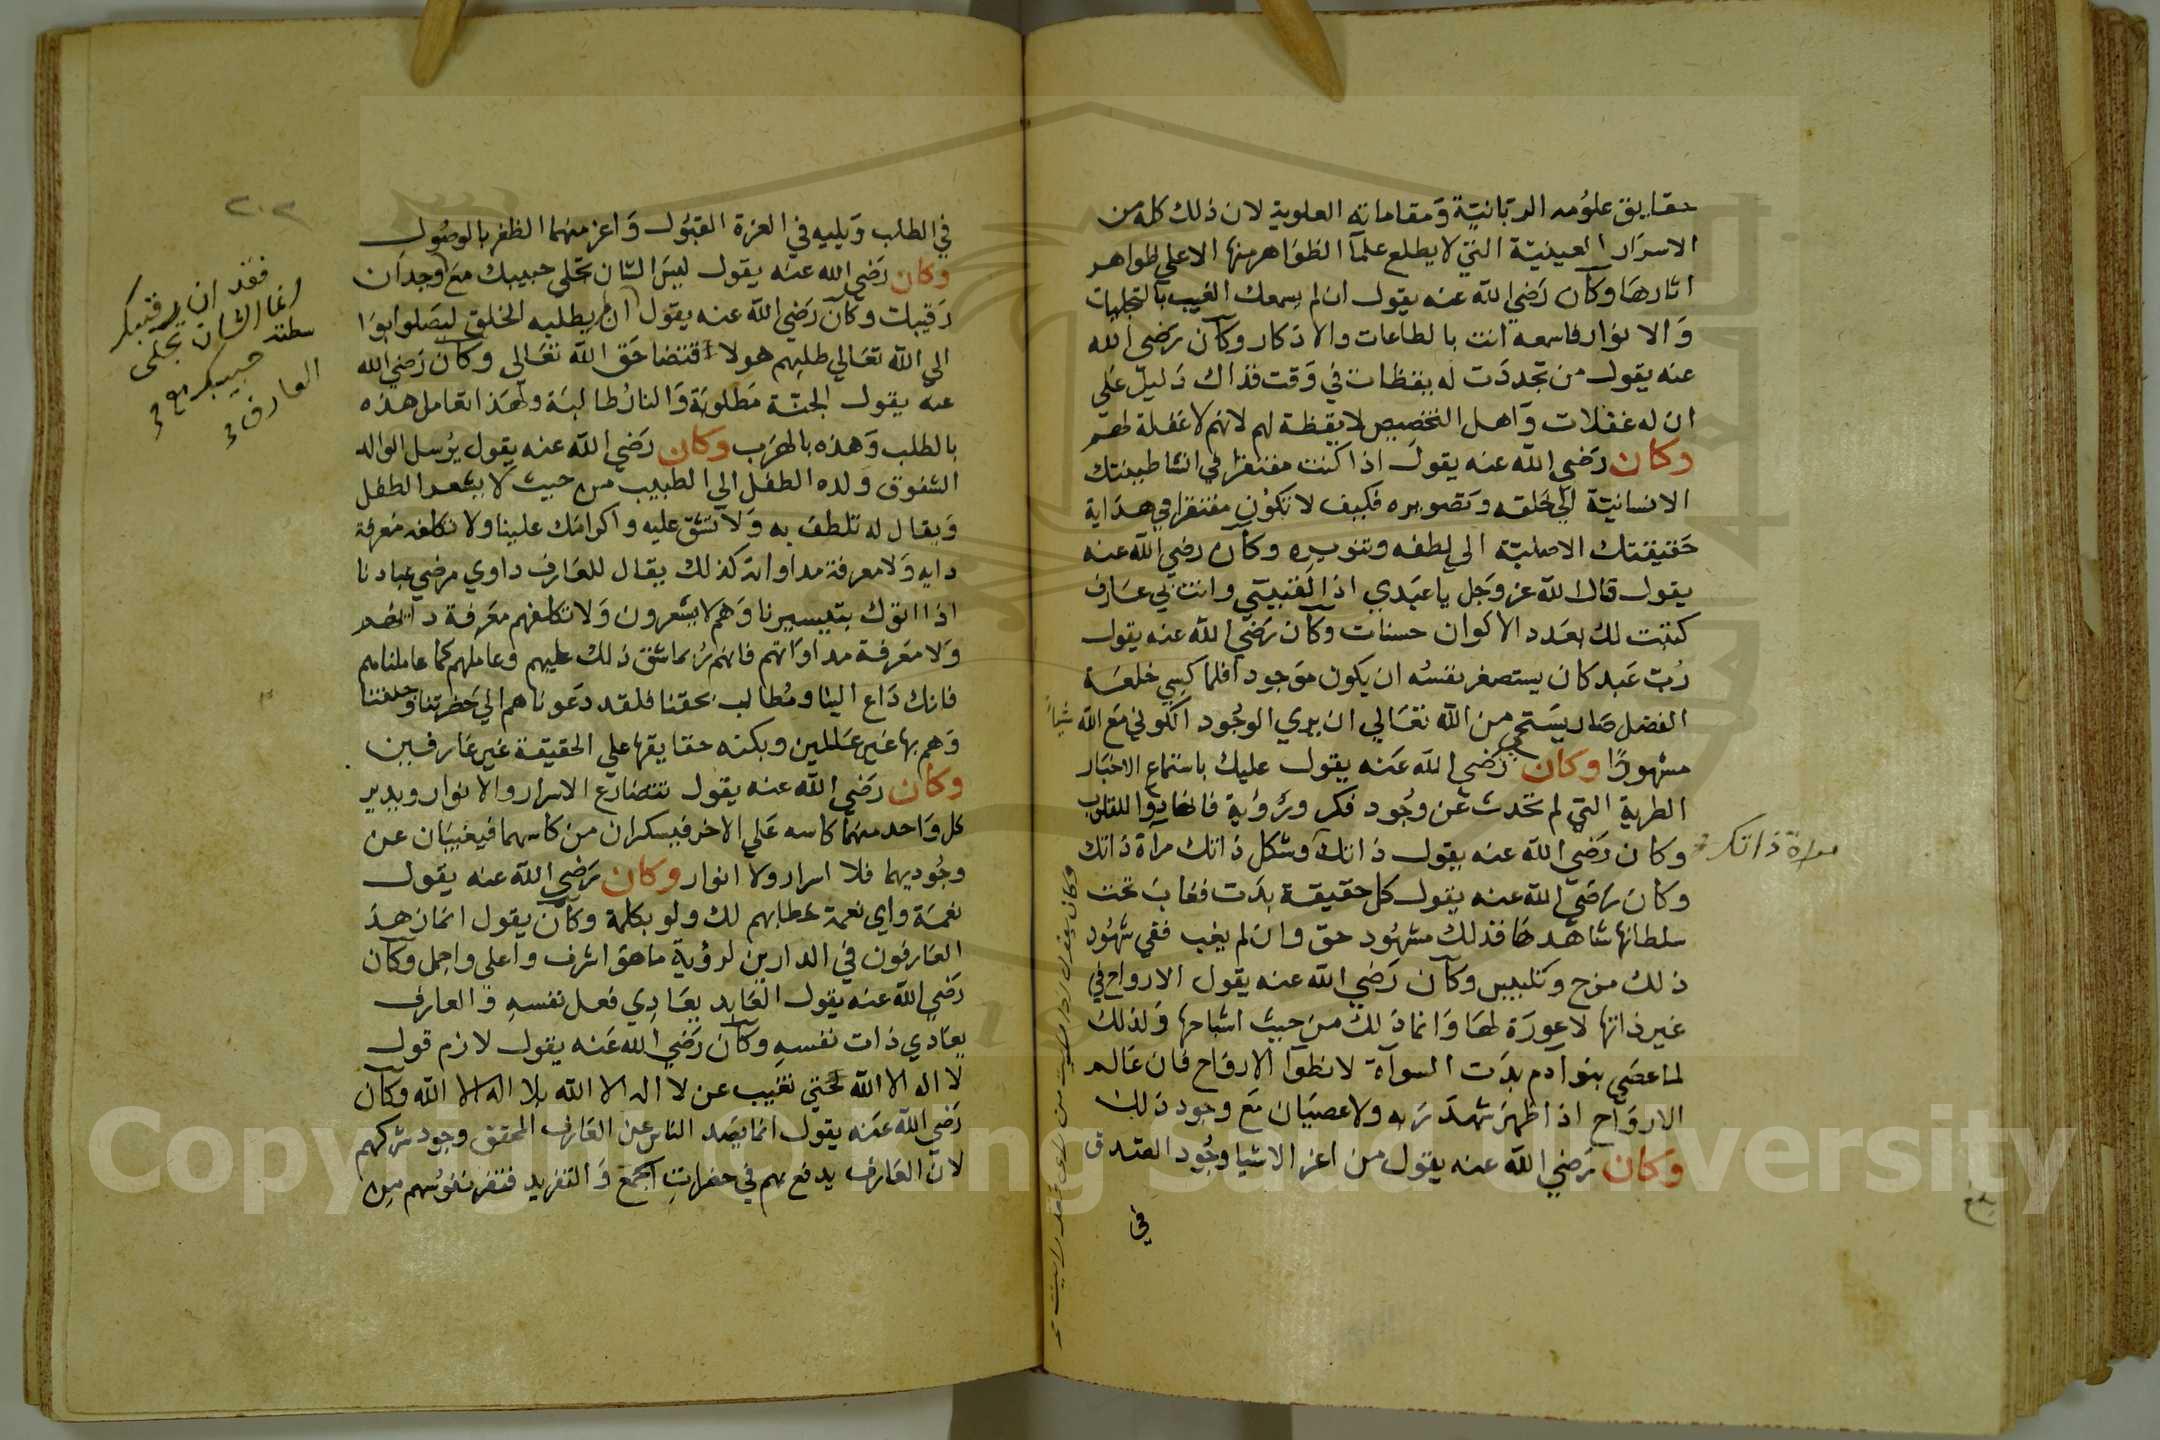 حقايق علومه الربانية ومقاماته العلوية لان ذلك كله من
الاسرار الغيبية التي لا يطلع علمآ الظواهر منها الا علي ظواهر
اثارها وكان رضي الله عنه يقول ان لم يسمعك الغيب بالتجليات
والانوار فاسمعه انت بالطاعات والاذكار وكان رضي الله
عنه يقول من تجددت له يقظات في وقت فذاك دليل علي
ان له غفلات واهل التخصيص لا يقظة لهم لانهم لا غفلة لهم
وكان رضي الله عنه يقول اذا كنت مفتقرا في انشا طينتك
الانسانية الي خلقه وتصويره فكيف لا تكون مفتقرا في هداية
حقيقتك الاصلية الي لطفه وتنويره وكان رضي الله عنه
يقول قال الله عز وجل يا عبدي اذا لقيتني وانت بي عارف
كتبت لك بعدد الاكوان حسنات وكان رضي الله عنه يقول
رب عبد كان يستصغر نفسه ان يكون موجودا فلما كسي خلعة
الفضل صار يستحي من الله تعالي ان يري الوجود الكوني مع الله
شيأ
مشهودا وكان رضي الله عنه يقول عليك باستماع الاخبار
الطرية التي لم تحدث عن وجود فكر ورؤية فانها للقلوب
وكان رضي الله عنه يقول ذاتك وشكل ذاتك مرآة ذاتك
مرآة ذاتك
وكان رضي الله عنه يقول كل حقيقة بدت فغاب تحت
سلطانها شاهدها فذلك مشهود حق وان لم يغب ففي شهود
ذلك مزج وتلبيس وكان رضي الله عنه يقول الارواح في
غير ذاتها لا عورة لها وانما ذلك من حيث اشباحها ولذلك
لما عصي بنو ادم بدت السوآة لا نطوآ الارواح فان عالم
الارواح اذا ظهر شهد ربه ولا عصيان مع وجود ذلك
وكان رضي الله عنه يقول من اعز الاشيا وجود الصدق
في
وكان يقول
بلغ
٢٠٢
في الطلب ويليه في العزة القبول واعز منهما الظفر بالوصول
وكان رضي الله عنه يقول ليس الشان تجلي حبيبك مع وجدان
رقيبك وكان رضي الله عنه يقول ان لم يطلبه الخلق ليصلوا بوا
الي الله تعالي طلبهم هو لاقتضا حق الله تعالي وكان رضي الله
عنه يقول الجنة مطلوبة والنار طالبة ولهذا تعامل هذه
بالطلب وهذه بالهرب وكان رضي الله عنه يقول يرسل الوالد
الشفوق ولده الطفل الي الطبيب من حيث لا يشعر الطفل
ويقال له تلطف به ولا تشق عليه واكرامك علينا ولا تكلفه معرفة
دايه ولا معرفة مداواته كذلك يقال للعارف داوي مرضي عبادنا
اذا اتوك بتيسيرنا وهم لا يشعرون ولا تكلفهم معرفة دائهم
ولا معرفة مداواتهم فانهم ربما شق ذلك عليهم وعاملهم كما عاملناهم
فانك داع الينا ومطالب بحقنا فلقد دعوناهم الي حضرتنا وخلفنا
وهم بها غير عالمين وبكنه حقايقها علي الحقيقة غير عارفين
وكان رضي الله عنه يقول تتضارع الاسرار والانوار ويدير
كل واحد منهما كاسه علي الاخر فيسكران من كاسهما فيغيبان عن
وجوديهما فلا اسرار ولا انوار وكان رضي الله عنه يقول
نعمة واي نعمة عطابهم لك ولو بكلمة وكان يقول انما زهد
العارفون في الدارين لرؤية ما هو اشرف واعلي واجمل وكان
رضي الله عنه يقول العابد يعادي فعل نفسه والعارف
يعادي ذات نفسه وكان رضي الله عنه يقول لازم قول
لا اله الا الله حتي تغيب عن لا اله الا الله بلا اله الا الله وكان
رضي الله عنه يقول انما يصد الناس عن العارف المحقق وجود شركهم
لان العارف يدفع بهم في حضرات الجمع والتفريد فتفر نفوسهم من
فقد ان رقيبك
انما الشان تجلي
حبيبك مع
العارف